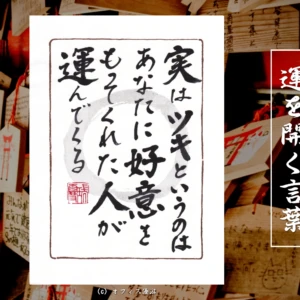 実はツキというのは
あなたに好意を
もってくれた人が
運んでくる
運を開く言葉